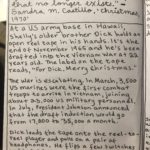 that no longer exists." –
Sandra M. Castillo, "Christmas,
1970"
At a US army base in Hawaii,
my older brother Dick holds an
open reel tape in his hands. It's the
end of November 1965 and he's been
drafted into the Vietnam War at 22
years old. The label on the tape
reads, "For Dick, Merry Christmas."
The war is escalating. In March, 3,500
US marines were the first combat
troops to arrive in Vietnam, joining
about 23,000 US military personnel.
In July, President Johnson announced
that the draft induction would go
from 17,000 to 35,000 a month.
Dick loads the tape onto the reel-to-
reel player and puts on a pair of
headphones. He flips a few switches